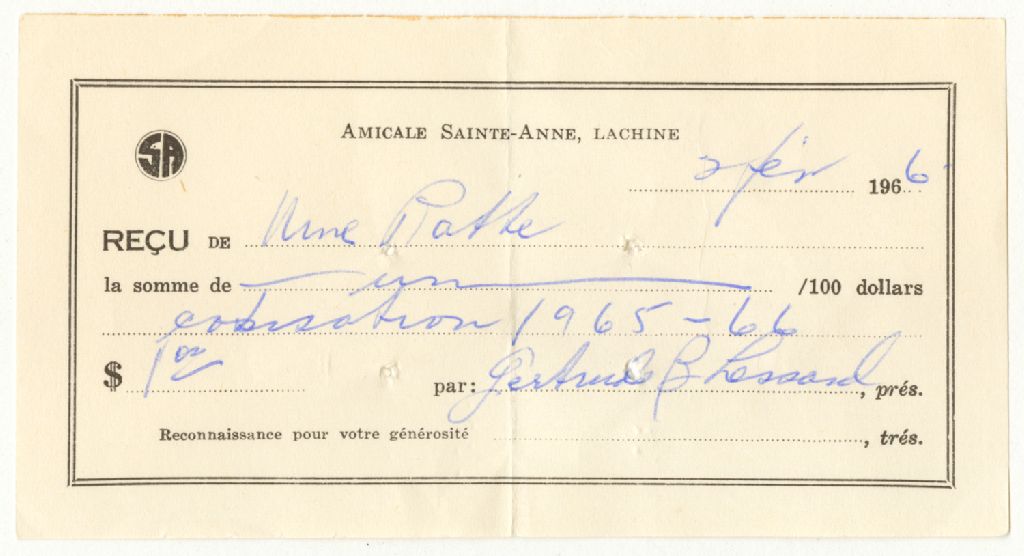 AMICALE SAINTE-ANNE, LACHINE
SA
2 fév 1966
REÇU DE Mme Ratte
la somme de un /100 dollars
cotisation 1965-66
$ 1.00 par: Gertrude B Lessard, prés.
Reconnaissance pour votre générosité , trés.